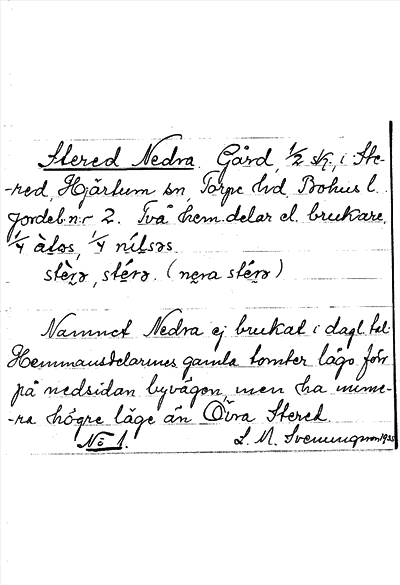 Stered Nedra. Gård, 1/2 sk., i Ste-
-red, Hjärtum sn, Torpe hd, Bohus l.
Jordeb. nr 2. Två hem.delar el. brukare,
1/4 àḷəs, 1/4 níḷsəs.
stèrə, stérə. (nera stérə)
Namnet Nedra ej brukat i dagl. tal.
Hemmansdelarnes gamla tomter lågo förr
på nedsidan byvägen, men ha nume-
-ra högre läge än Övra Stered.
No 1. L. M. Svenungsson 1935